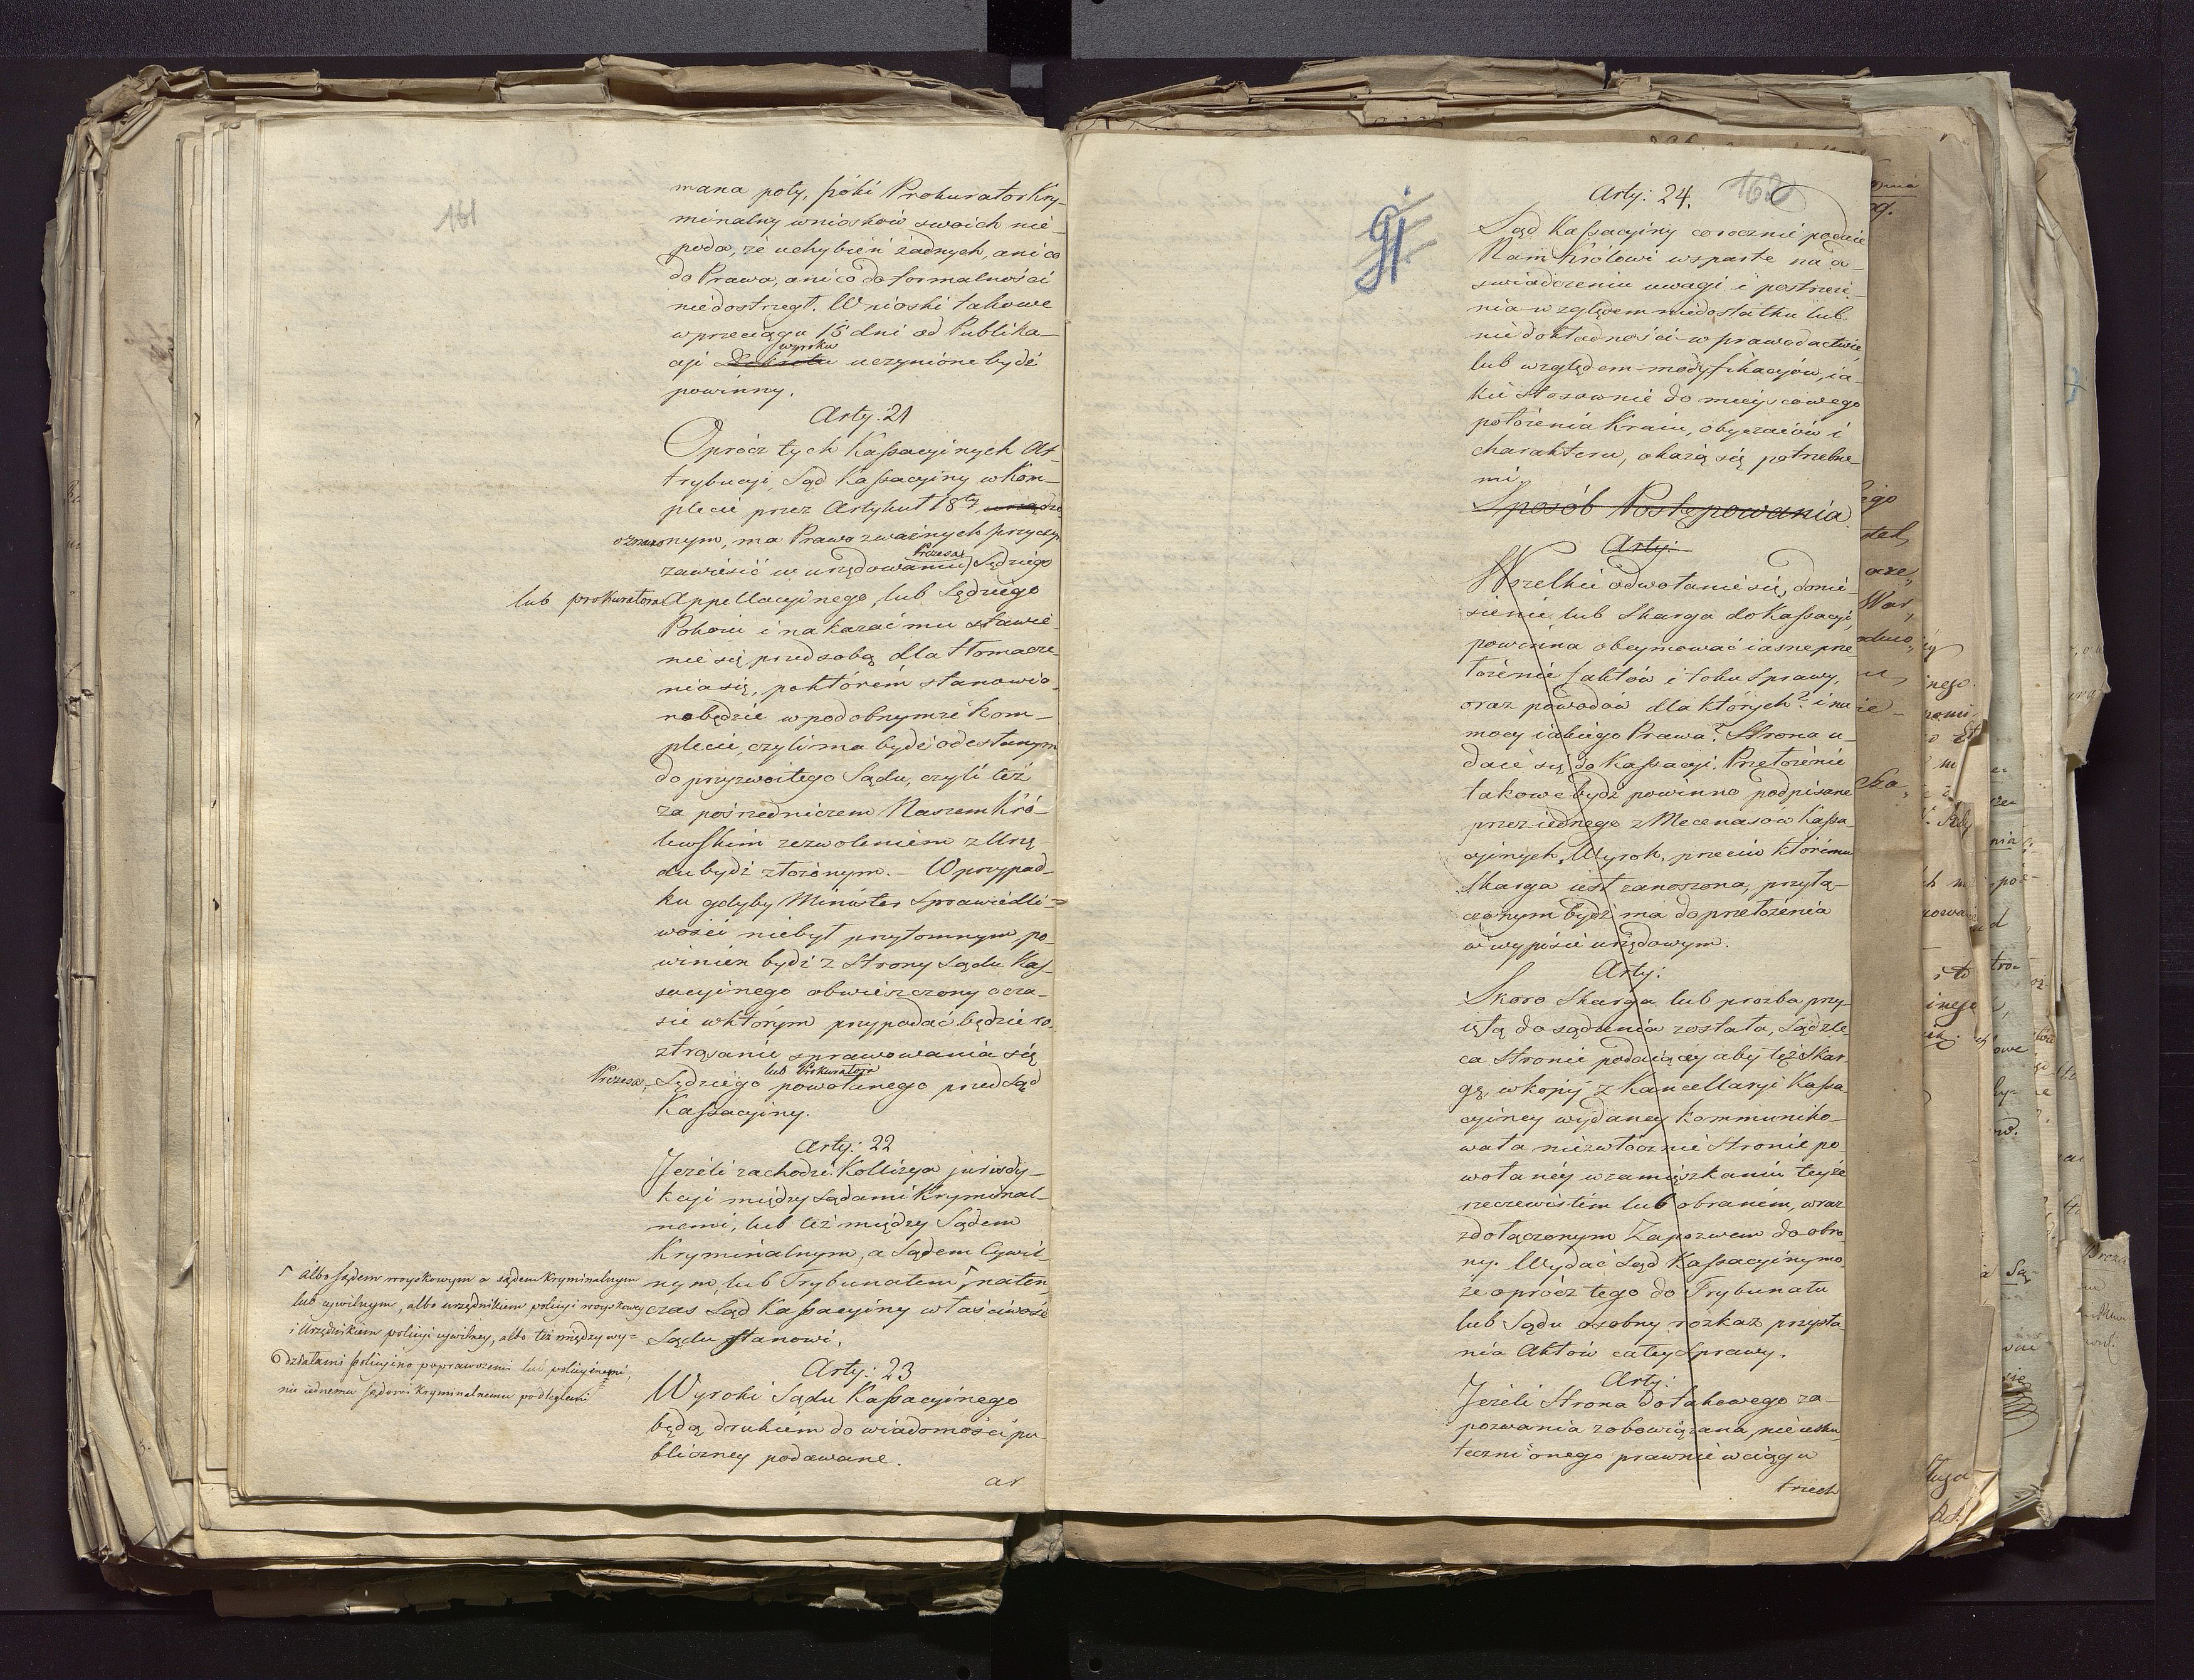 161
mana poty, póki Prokurator Kry-
minalny wniosków swoich nie
poda, że uchybień żadnych, ani co
do Prawa, ani co do formalności
niedostrzegł. Wnioski takowe
w przeciągu 15 dni od Publika-
cyi Dekretu wyroku uczynione bydź
powinny.
Arty: 21
Oprócz tych Kassacyinych At-
trybucyi Sąd Kassacyiny w Kom-
plecie przez Artykuł 18ty
oznaczonym, ma Prawo zważnych przyczyn
zawiesić w urzędowaniu Prezesa, Sędziego
lub prokuratora Appellacyinego, lub Sędziego
Pokoiu i nakazać mu stawie-
nie się przed sobą dla tłomacze-
nia się, po którém stanowio-
no będzie w podobnymże kom-
plecie, czyli ma bydź odesłanym
do przyzwoitego Sądu, czyli też
za pośrednictwem Naszem Kró-
lewskim zezwoleniem z Urzę-
du bydź złożonym. - W przypad-
ku gdyby Minister Sprawiedli-
wości niebył przytomnym po-
winien bydź z Strony Sądu Kas-
sacyinego obwieszczony o cza-
sie w którym przypadać będzie ro-
ztrząsanie sprawowania się
Prezesa, Sędziego lub Prokuratora powołanego przed Sąd
Kassacyiny.
Arty: 22
Jeżeli zachodzi Kollizya jurisdy-
kcyi między Sądami Kryminal-
nemi, lub też między Sądem
Kryminalnym, a Sądem Cywil-
nym, lub Trybunałem, naten-
czas Sąd Kassacyiny właściwość
Sądu stanowi.
albo sądem woyskowym a sądem kryminalnym
lub cywilnym, albo urzędnikiem policyi woyskowey
i Urzędnikiem policyi cywilney, albo też między wy-
działami policyino poprawczemi lub policyinemi,
nie iednemu sądowi kryminalnemu podległemi
Arty: 23
Wyroki Sądu Kassacyinego
będą drukiem do wiadomości pu-
bliczney podawane.
ar
91.
162
Arty: 24.
Sąd Kassacyiny corocznie podaie
Nam Królowi wsparte na do-
świadczeniu uwagi i postrzeże-
nia względem niedostatku lub
niedokładności w prawodactwie,
lub względem modyfikacyów, ia-
kie stosownie do mieyscowego
położenia Kraiu, obyczaiów i
charakteru, okażą się potrzebne-
mi.
Sposób Postępowania.
Arty:
Wszelkie odwołanie się, donie-
sienie, lub Skarga do Kassacyi,
powinna obeymować iasne prze-
łożenie faktów i toku Sprawy,
oraz powodów dla których? i na
mocy iakiego Prawa? Strona u-
daie się do Kassacyi. Przełożenie
takowe bydź powinno podpisane
przez iednego z Mecenasów Kassa-
cyinych. Wyrok, przeciw któremu
Skarga iest zanoszona, przyłą-
czonym bydź ma do przełożenia
w wypisie urzędowym.
Arty:
Skoro Skarga lub prozba przy-
iętą do sądzenia została, Sąd zle-
ca Stronie podaiącey aby tęż Skar-
gę, w kopij z Kancellaryi Kassa-
cyiney wydaney kommuniko-
wała niezwłocznie Stronie po-
wołaney w zamieszkaniu teyże
rzeczewistem lub obranem, wraz
z dołączonym Zapozwem do obro-
ny. Wydać Sąd Kassacyiny mo-
że oprócz tego do Trybunału
lub Sądu osobny rozkaz przysła-
nia Aktów całey Sprawy.
Arty:
Jeżeli Strona do takowego za-
pozwania zobowiązana, nie usku-
tecznionego prawnie w ciągu
trzech